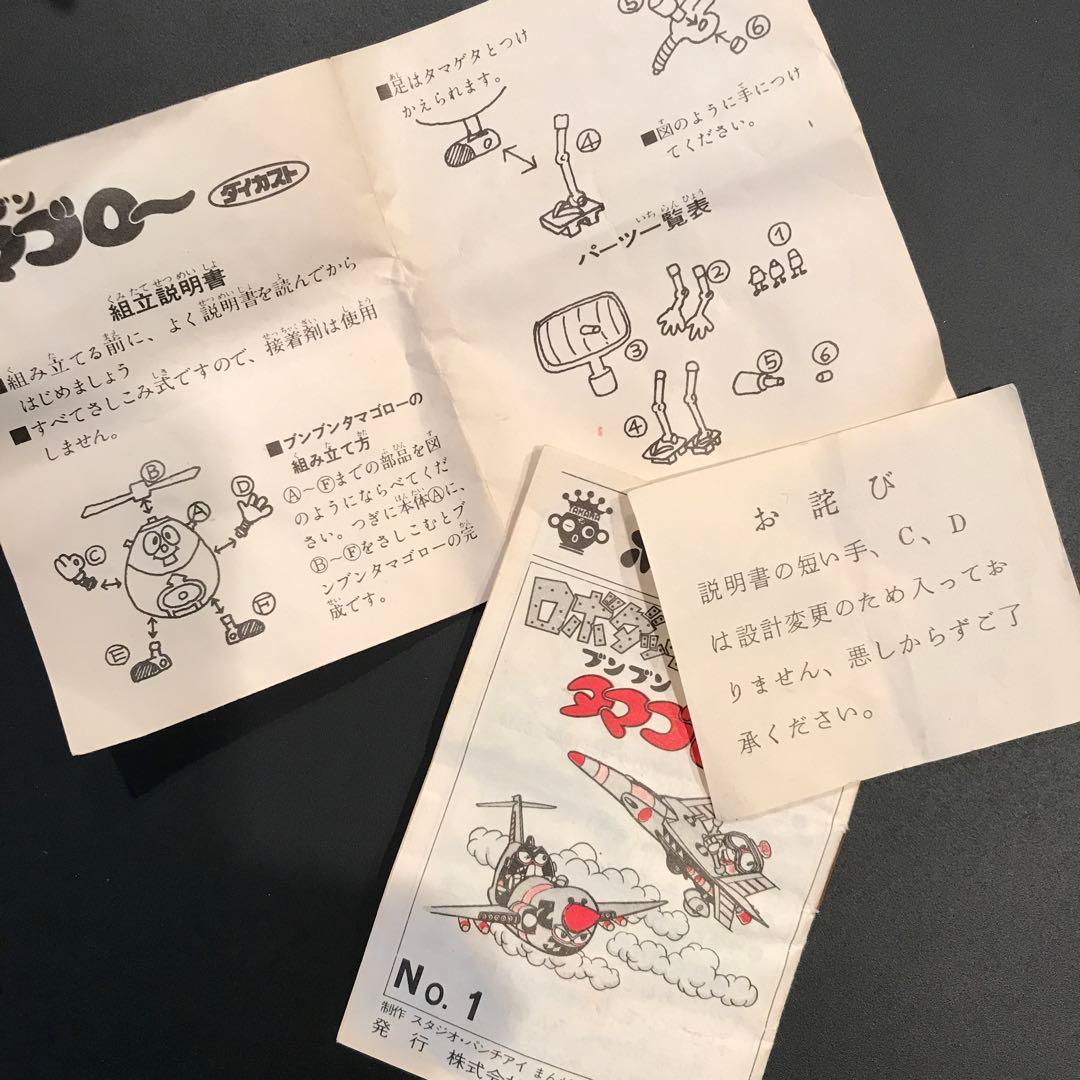 ブン
マゴロー
ダイカスト
組立説明書
くみたてせつめいしょ
■組み立てる前に、よく説明書を読んでから
はじめましょう
■すべてさしこみ式ですので、接着剤は使用
しません。
■ブンブンタマゴローの
組み立て方
Ⓐ〜Ⓕまでの部品を図
のようにならべてくだ
さい。つぎに本体Ⓐに、
Ⓑ〜Ⓕをさしこむとブ
ンブンタマゴローの完
成です。
Ⓑ
Ⓐ
Ⓓ
Ⓒ
Ⓔ
Ⓕ
■足はタマゲタとつけ
かえられます。
④
⑤
⑥
■図のように手につけ
てください。
パーツ一覧表
いちらんひょう
①
②
③
④
⑤
⑥
お詫び
説明書の短い手、C、D
は設計変更のため入ってお
りません、悪しからずご了
承ください。
TAKARA
ブンブン
タマゴ
No. 1
制作 スタジオ・パンチアイ まん
発行 株式会